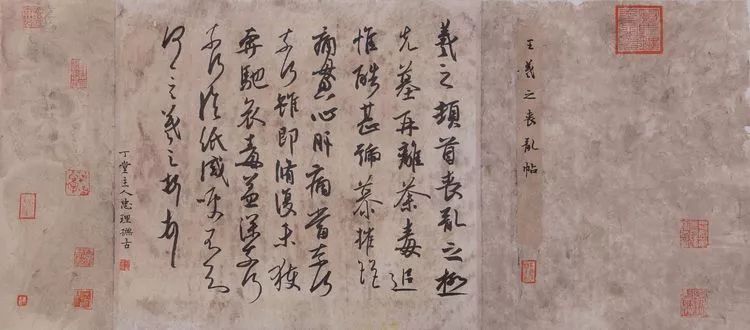 王羲之喪亂帖
羲之頓首喪亂之極
先墓再離荼毒追
惟酷甚號慕摧絕
痛貫心肝痛當奈何
奈何雖即脩復未獲
奔馳哀毒益深奈何
奈何臨紙感哽不知
何言羲之頓首頓首
丁堂主人惠理撫古